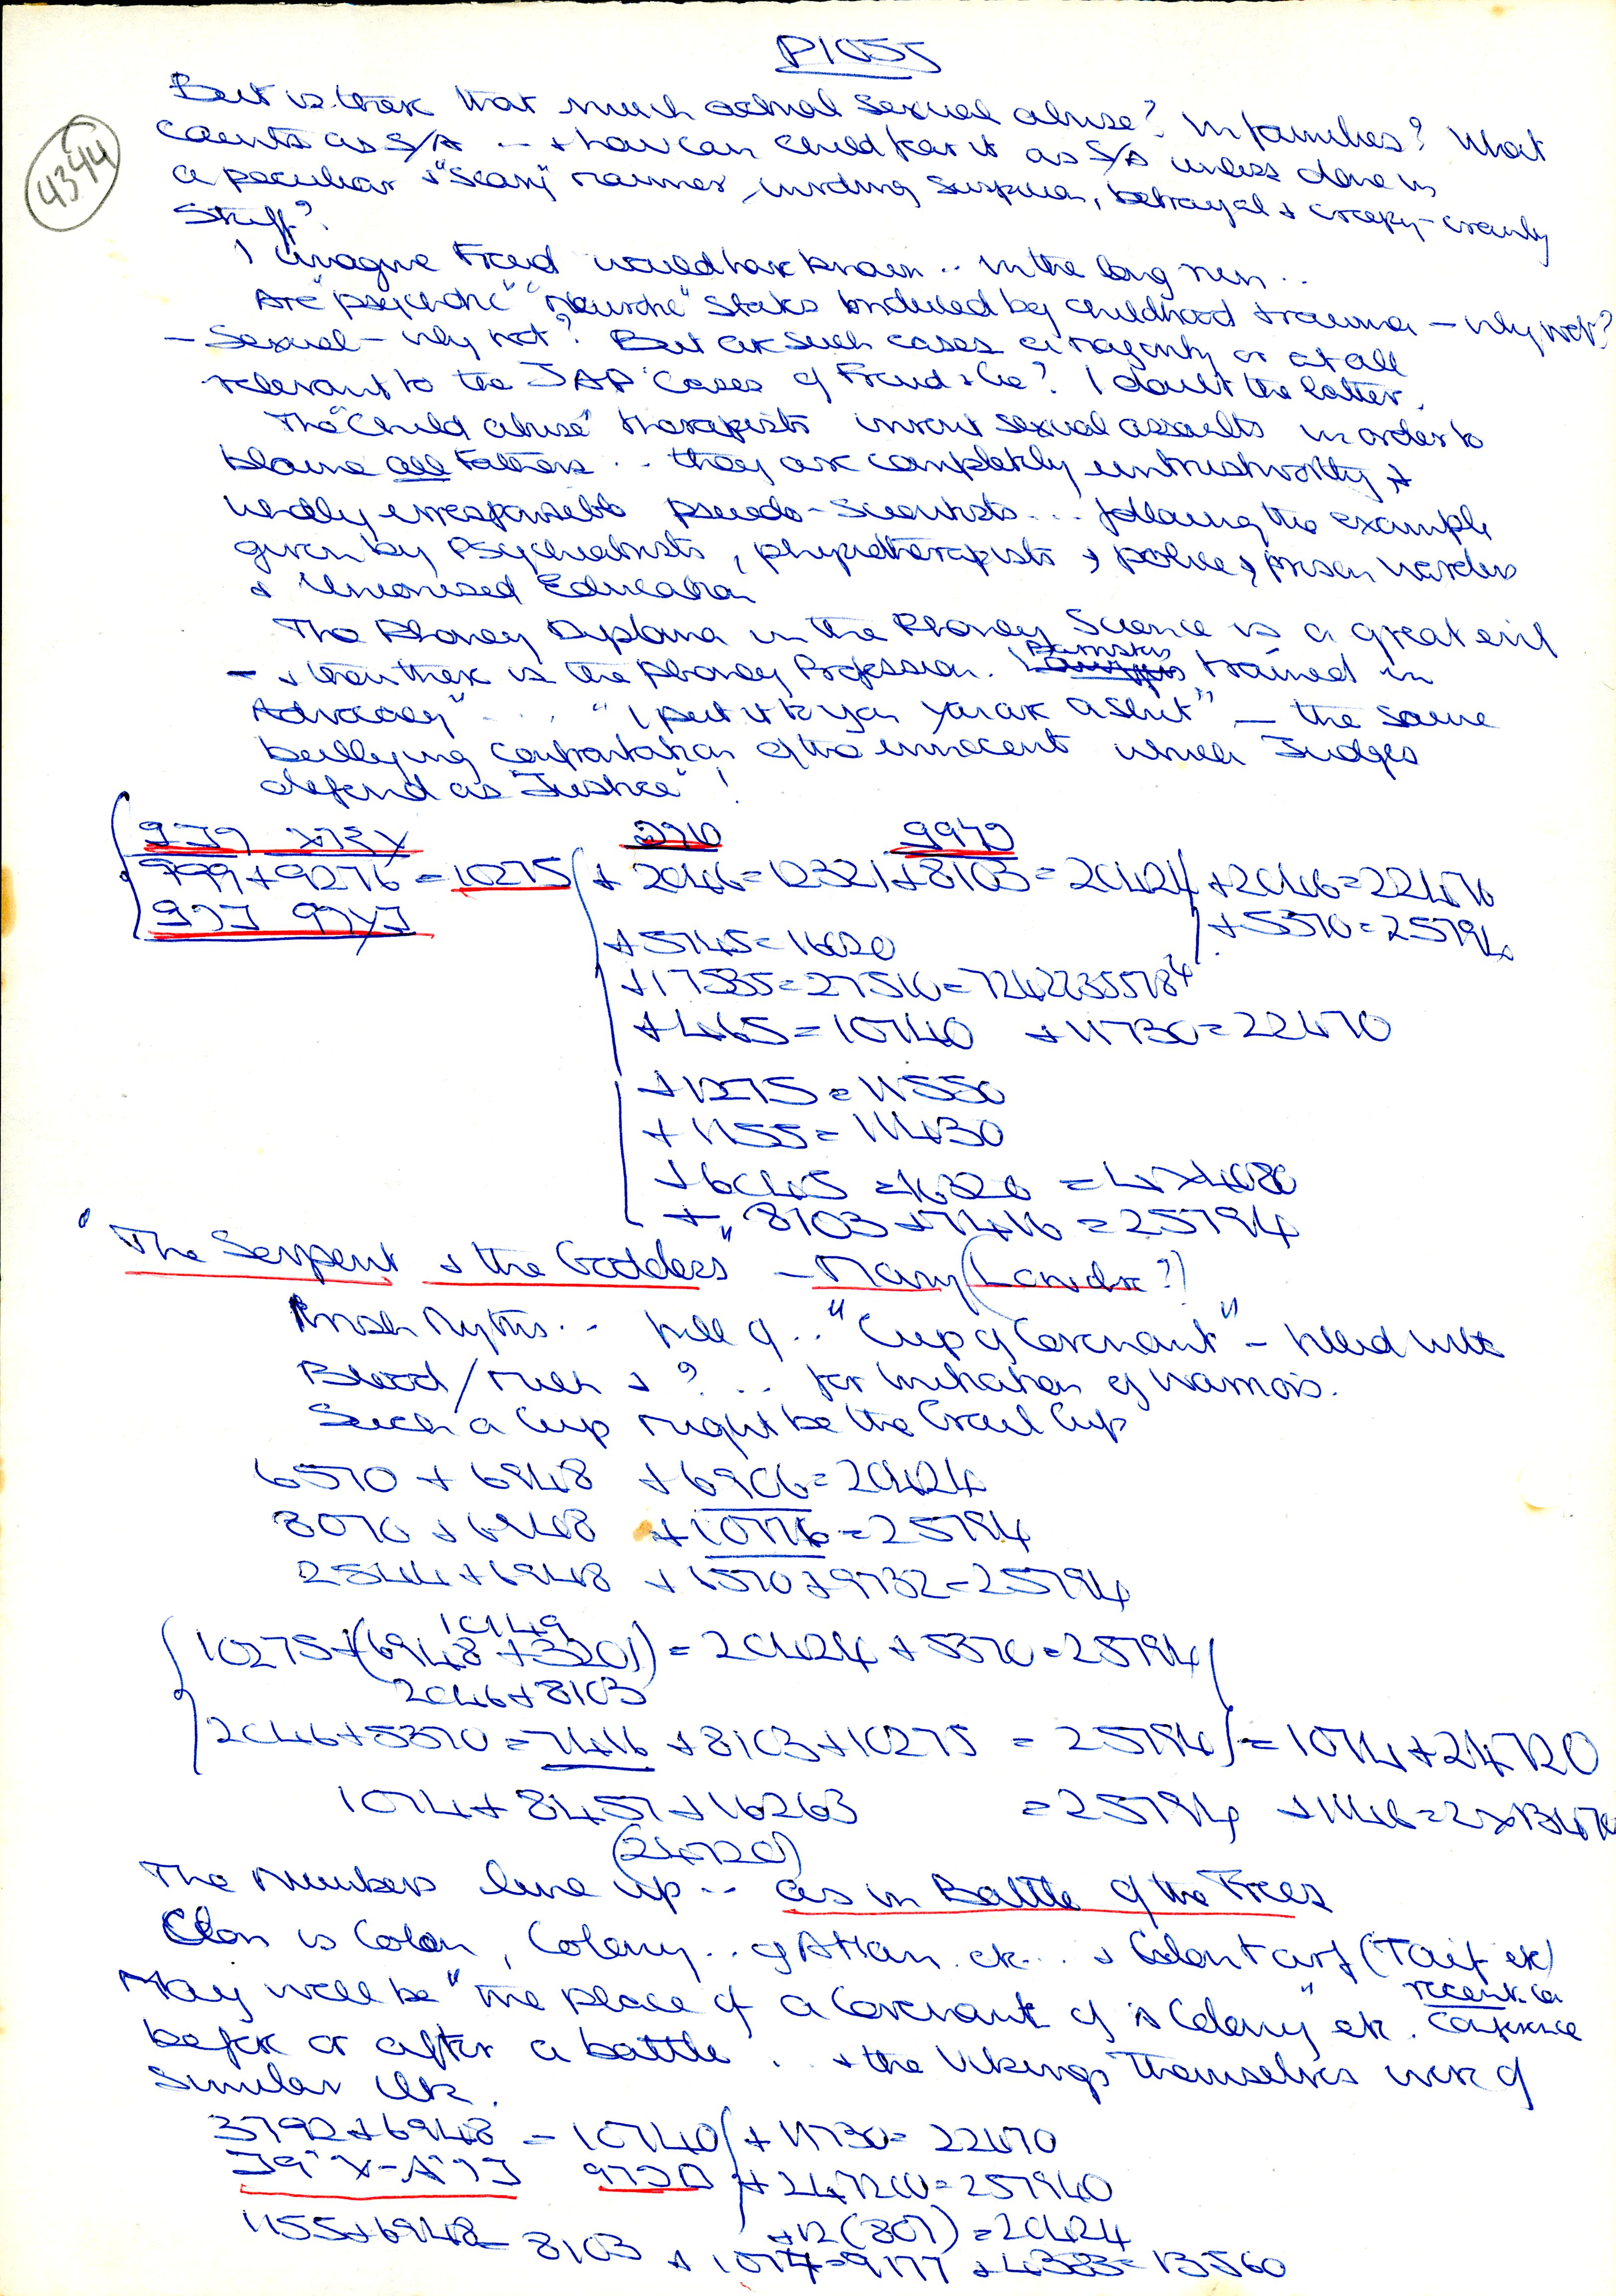 P1055
4344
But is there that much actual sexual abuse? In families? What
counts as S/A .. & how can child fear it as S/A unless done in
a peculiar & "scary" manner, involving surprise, betrayal & creepy-crawly
stuff?
I imagine Freud would have known .. in the long run ..
Are "psychotic" "neurotic" states induced by childhood trauma – why not?
– Sexual – why not? But are such cases a majority or at all
relevant to the JAP cases of Freud & Co? I doubt the latter.
The "Child abuse" therapists invent sexual assaults in order to
blame all Fathers .. they are completely untrustworthy &
wholly irresponsible pseudo-Scientists ... following the example
given by Psychiatrists, physiotherapists, police, prison warders
& Unionised Education
The Phoney Diploma in the Phoney Science is a great evil
– & then there is the Phoney Profession. Barristers trained in
Advocacy" .... "I put it to you you are a slut" – the same
bullying confrontation of the innocent which Judges
defend as Justice"!
999+9276=10275 + 2046=12321+8103=20424 +2046=22470
+5370=25794
+5745=16020
+465=10740 +11730=22470
+1275=11550
+1155=11430
+6045=16320 =4x4080
+ 8103+7416=25794
"The Serpent & the Goddess" – Mary (Condren?)
Irish Myths .. full of .. "Cup of Covenant" – filled with
Blood/milk & ? .. for initiation of warriors.
Such a Cup might be the Grail Cup
6570 + 6948 +6906=20424
8070 + 6948 +10776=25794
2544+6948 +6570+9732=25794
10149
10275+(6948+3201)=20424+5370=25794
2046+8103
2046+5370=7416+8103+10275 = 25794 =1074+24720
1074+8457+16263 =25794 +1146=2x13470
(24720)
The Numbers line up .. as in Battle of the Trees
Clon is Colon, Colony .. of Atlan. etc... & Clontarf (Taif etc)
May well be "the place of a Covenant of a Colony" etc. recent in
before or after a battle .. & the Vikings themselves were of Conference
similar ilk.
3792+6948 = 10740 +11730=22470
+12(807)=20424
1155+6948= 8103 + 1074=9177 +4383=13560